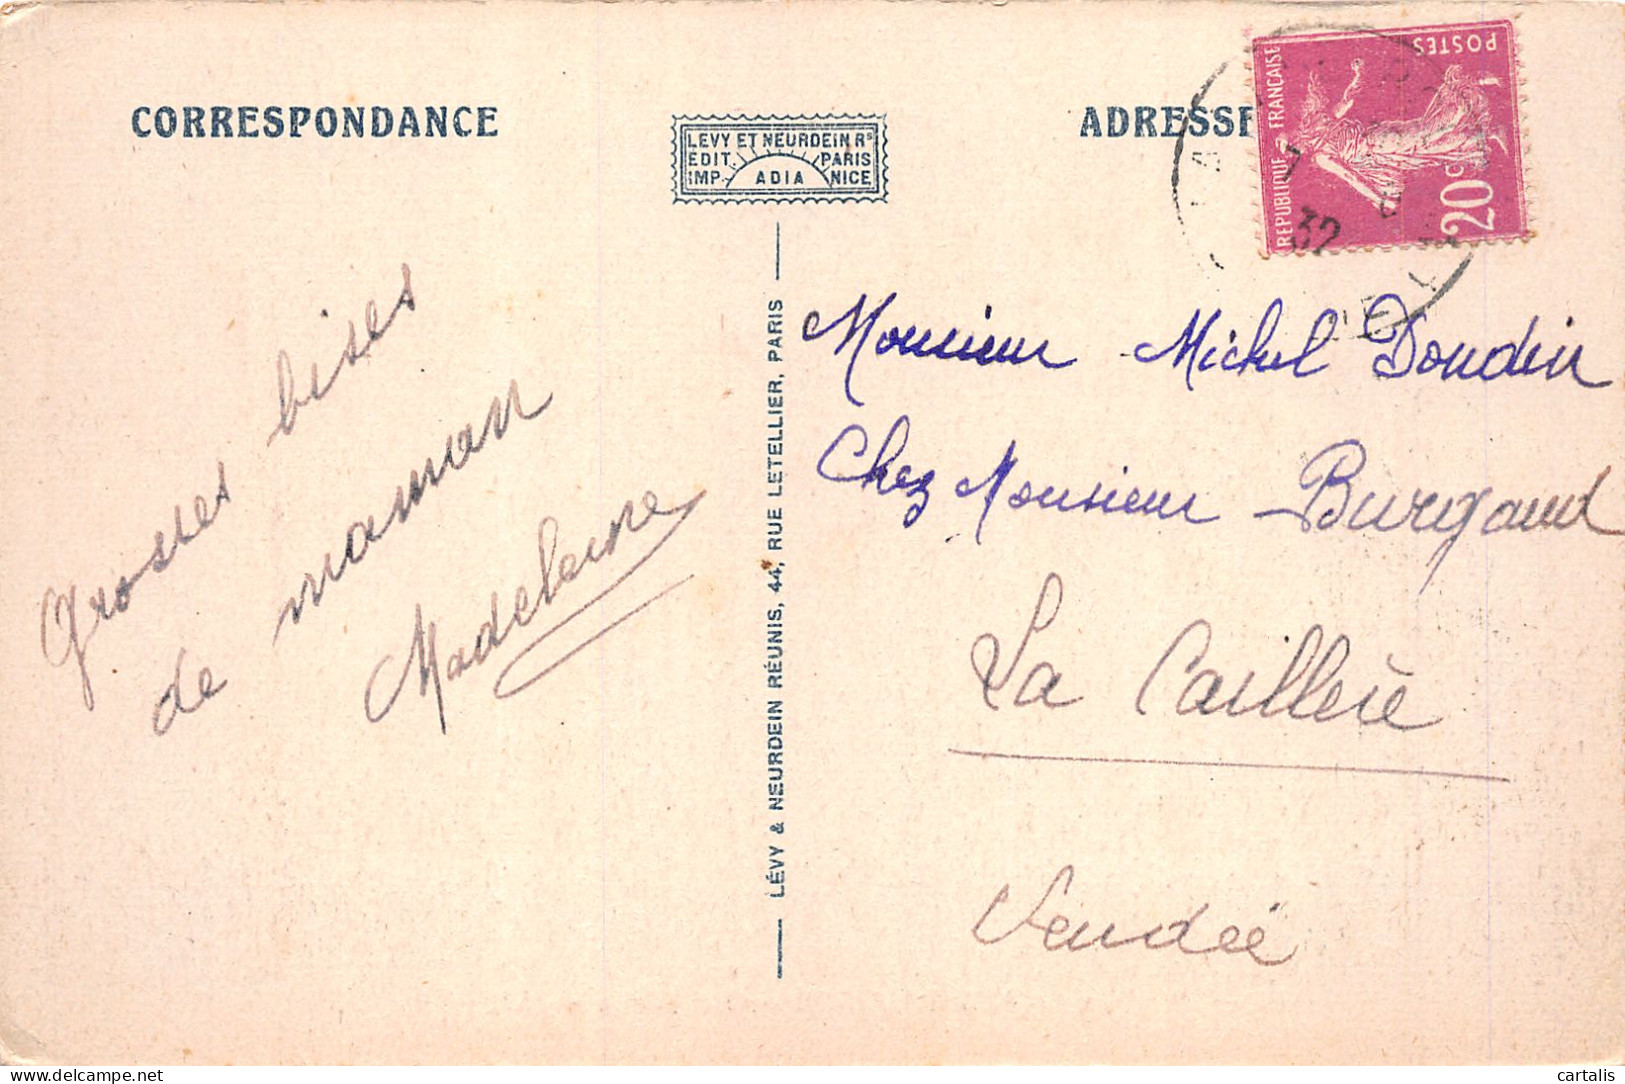 CORRESPONDANCE
LEVY ET NEURDEIN RS
EDIT. PARIS
IMP. ADIA NICE
ADRESSE
REPUBLIQUE FRANÇAISE
POSTES
20c
32
Grosses bises
de maman
Madeleine
LÉVY & NEURDEIN RÉUNIS, 44, RUE LETELLIER, PARIS
Monsieur Michel Doudin
Chez Monsieur Burgaud
La Caillère
Vendée
cartalis